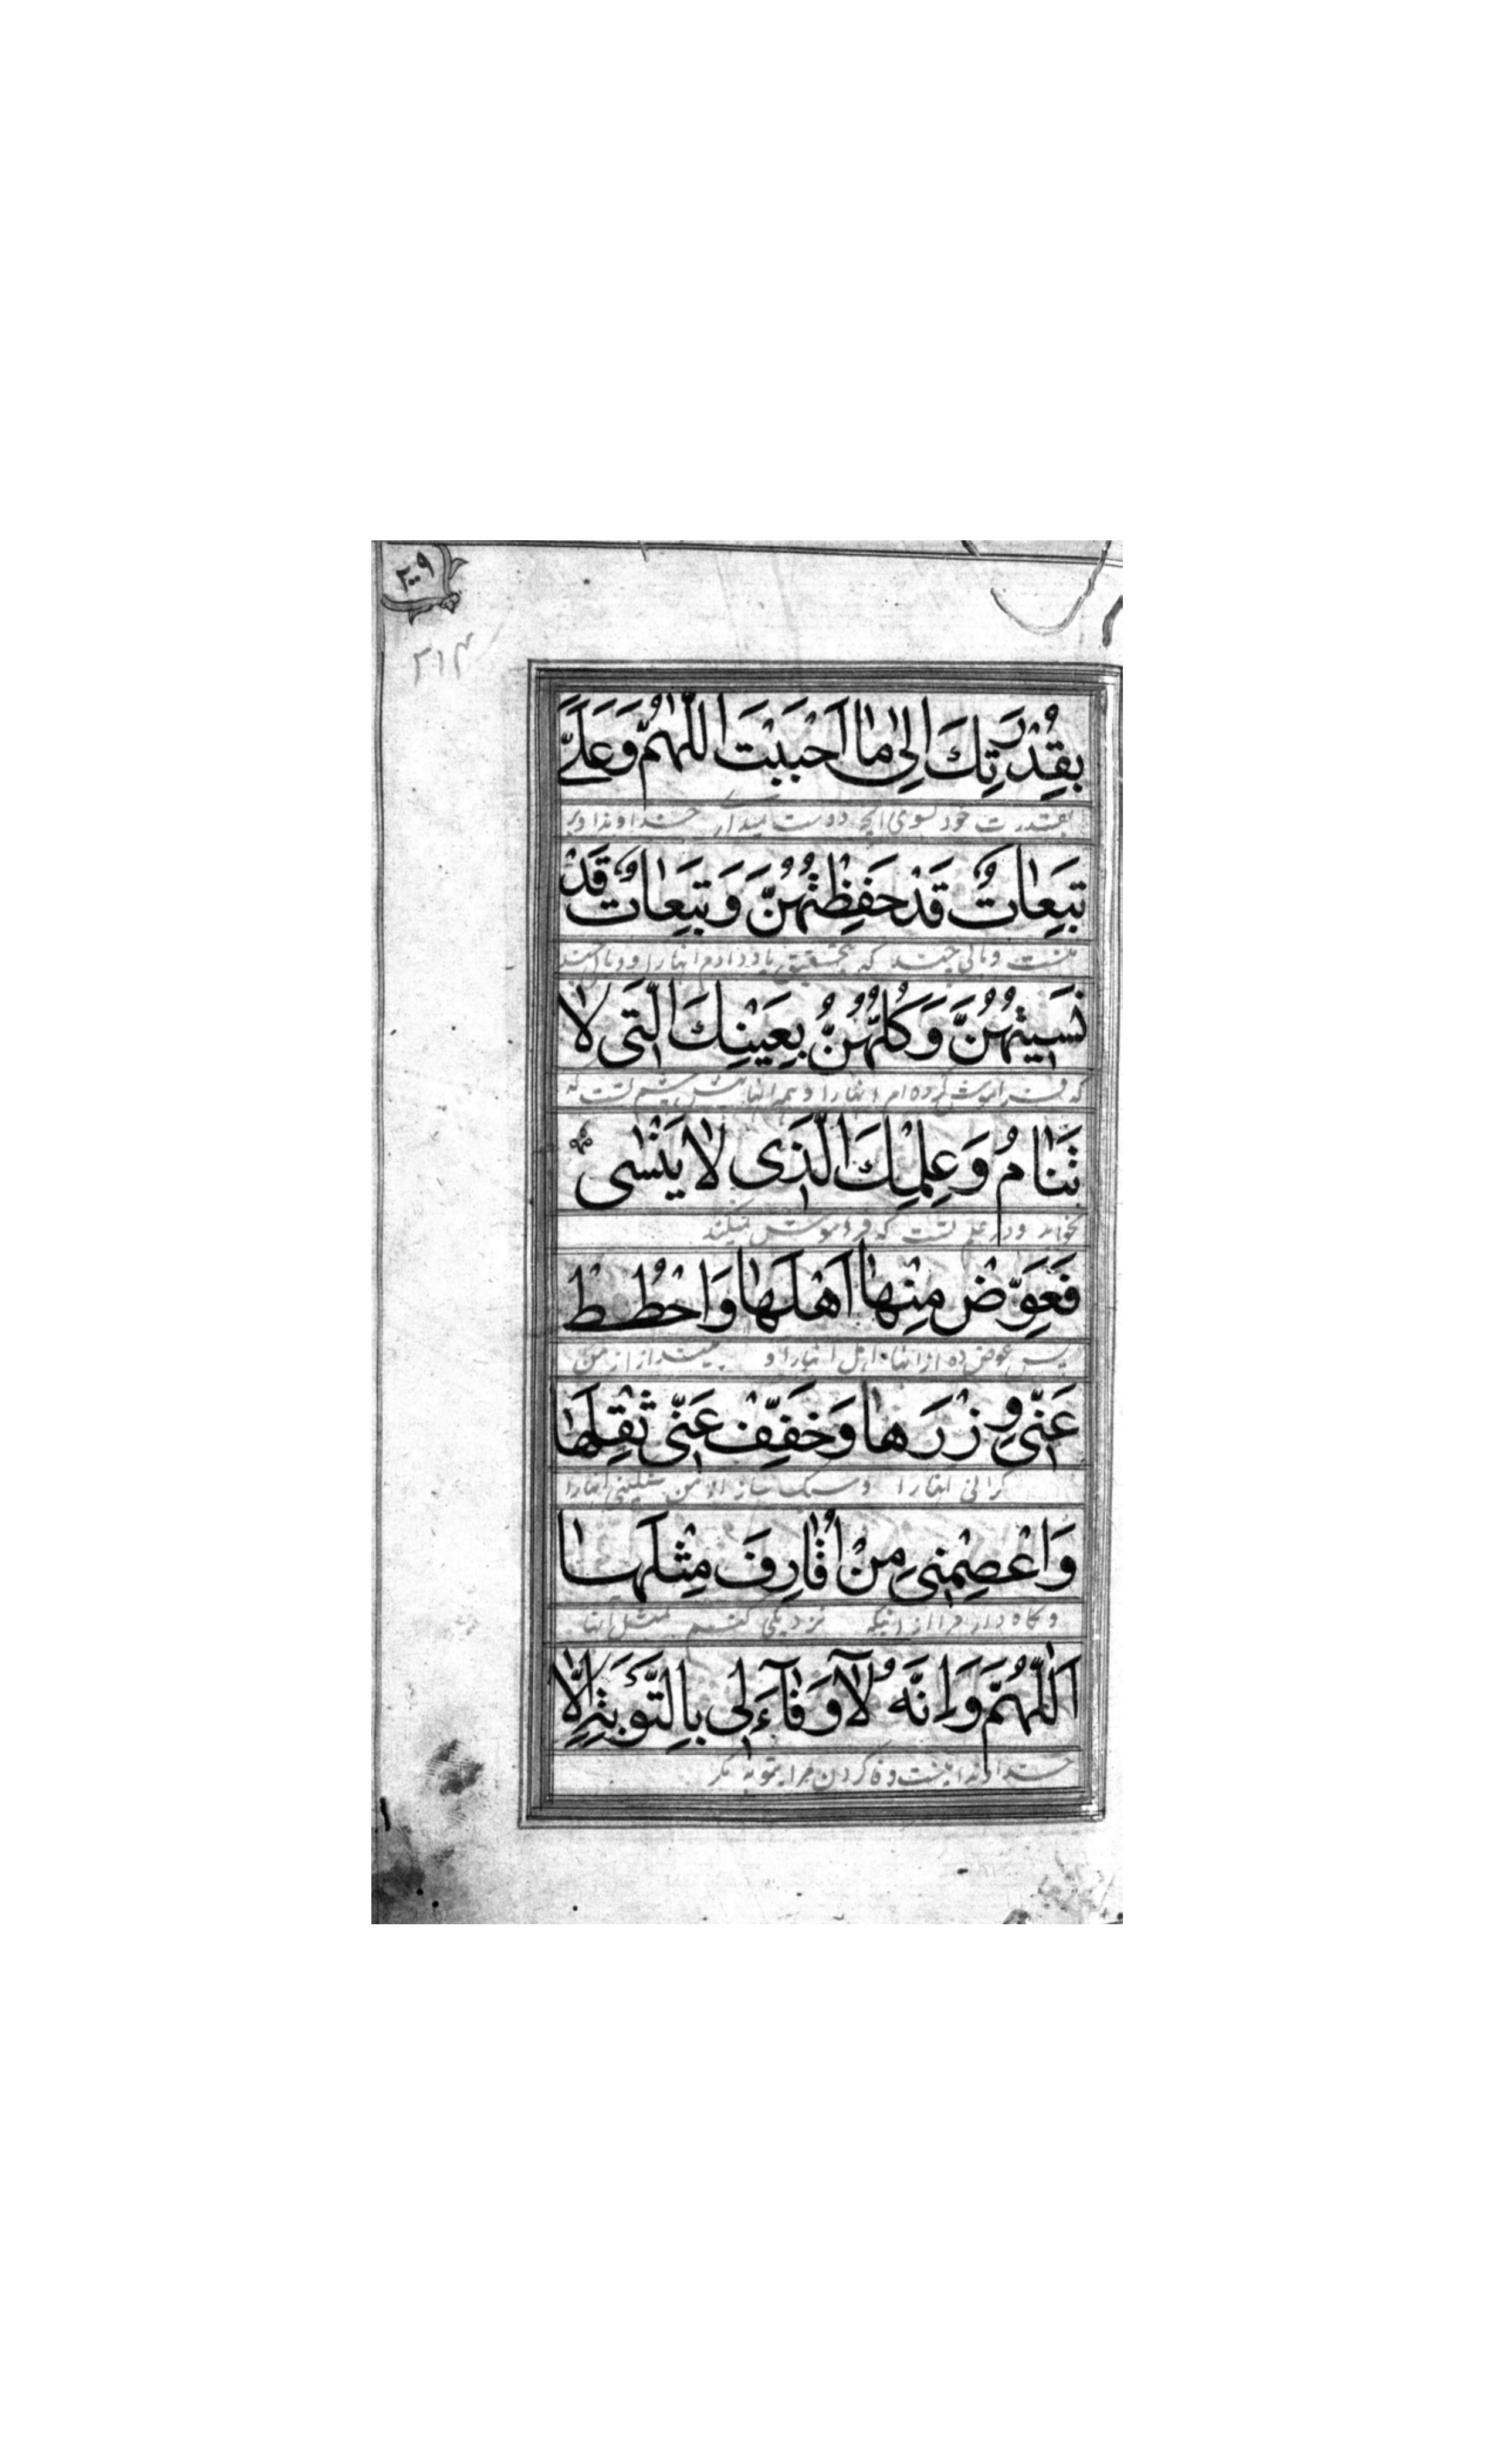 ۲۰۹
۲۱۴
بِقُدْرَتِكَ اِلٰى مٰا اَحْبَبْتَ اللّٰهُمَّ وَ عَلَىَّ
بقدرت خود بسوی انچه دوست میداری خداوندا و بر
تَبِعٰاتٌ قَدْ حَفِظْتُهُنَّ وَ تَبِعٰاتٌ قَدْ
منست وبالی چند که بتحقیق یاد دادم انها را و وبالی چند
نَسِيتُهُنَّ وَ كُلُّهُنَّ بِعَيْنِكَ الَّتِى لٰا
که فراموش کرده ام انها را و همه انها پیش چشم تست که
تَنٰامُ وَ عِلْمِكَ الَّذِى لٰا يَنْسٰى
نخوابد و در علم تست که فراموش نمیکند
فَعَوِّضْ مِنْهٰا اَهْلَهٰا وَ احْطُطْ
پس عوض ده از انها اهل انها را و بینداز از من
عَنِّى وِزْرَهٰا وَ خَفِّفْ عَنِّى ثِقْلَهٰا
گرانی انها را و سبک ساز از من سنگینی انها را
وَ اعْصِمْنِى مِنْ اَنْ اُقٰارِفَ مِثْلَهٰا
و نگاه دار مرا از اینکه نزدیکی کنم بمثل انها
اَللّٰهُمَّ وَ اِنَّهُ لٰا وَفٰآءَ لِى بِالتَّوْبَةِ اِلّٰا
خداوندا نیست وفا کردن مرا بتوبه مگر